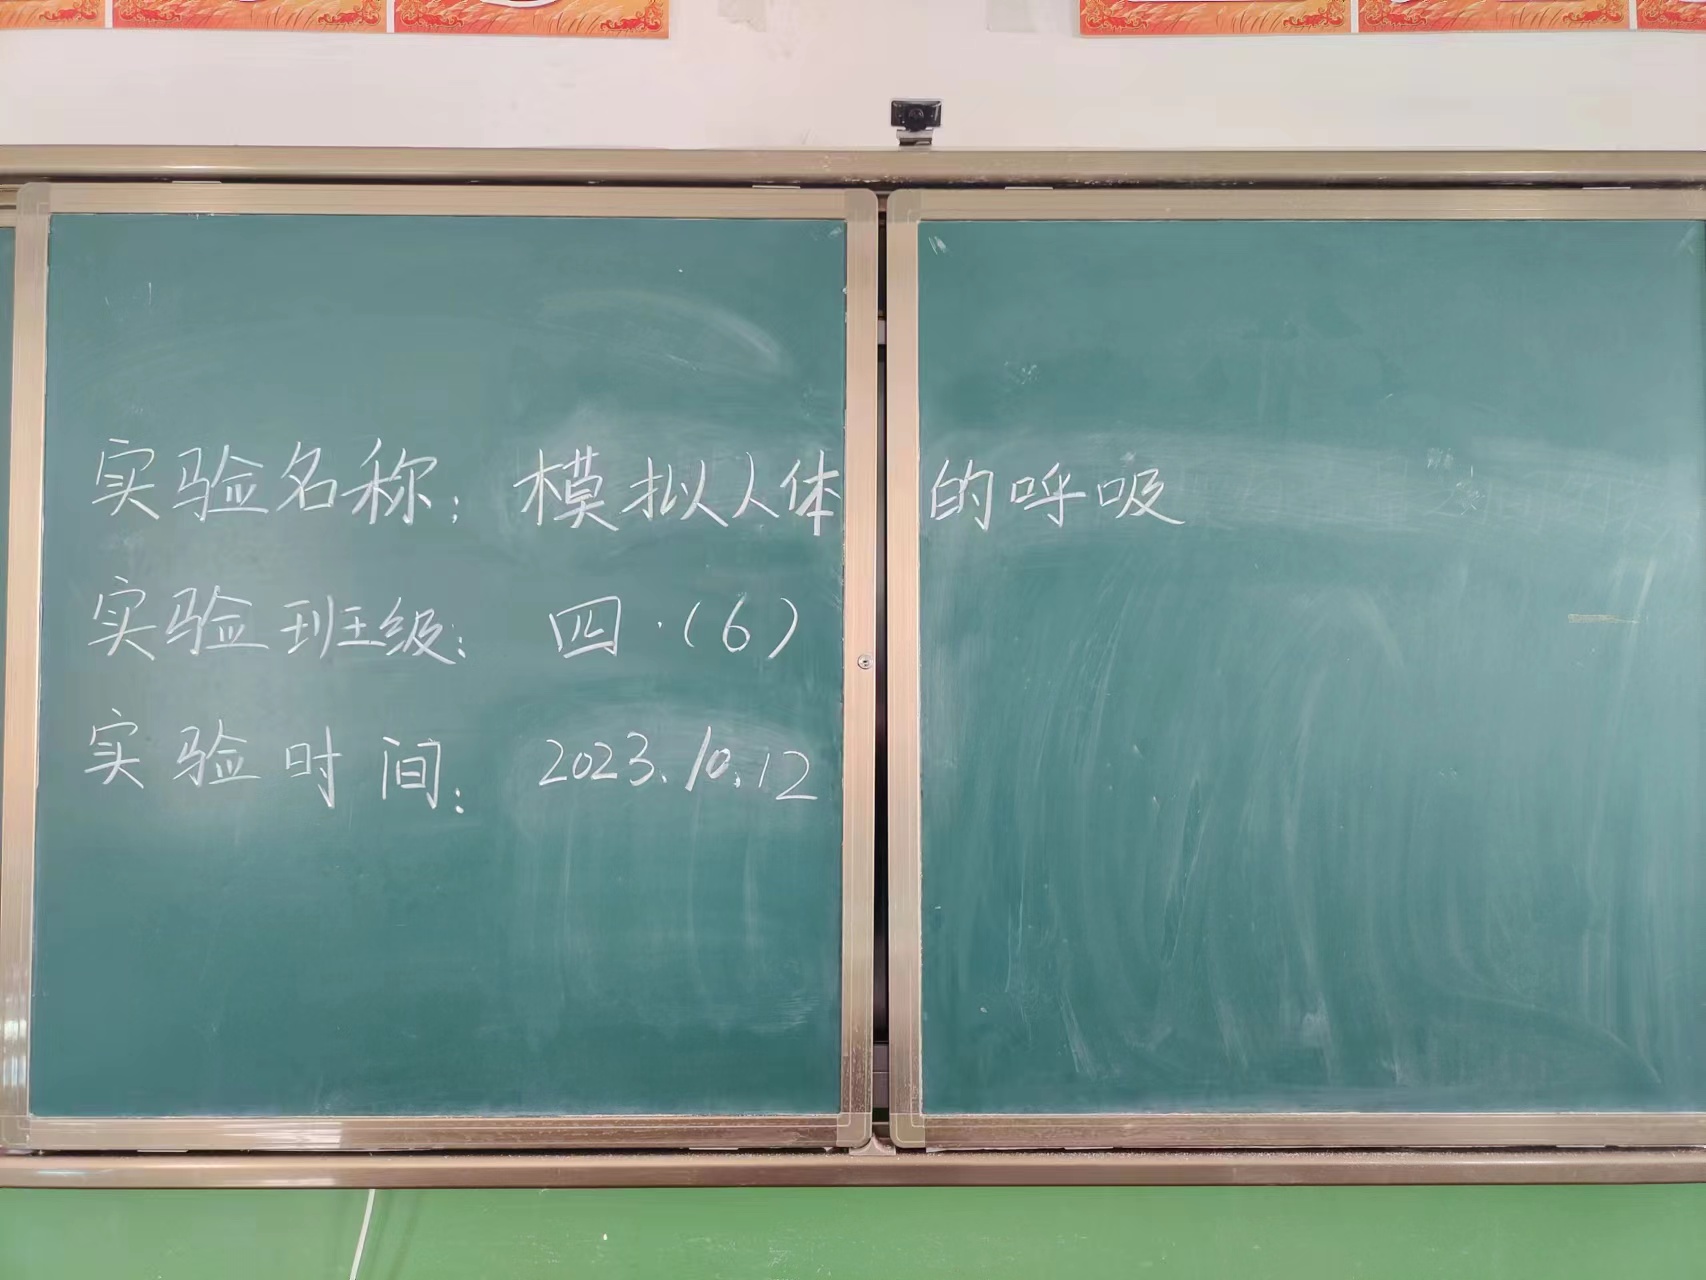 实验名称：模拟人体的呼吸
实验班级：四·（6）
实验时间：2023.10.12